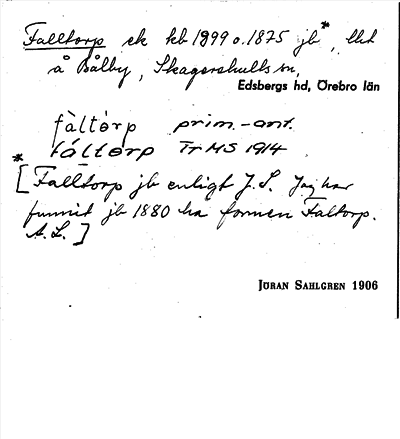 Falltorp ek kb 1899 o. 1875 jb*, llt
å Bålby, Skagershults sn,
Edsbergs hd, Örebro län
fàltòrp prim.-ant.
fáltòrp Fr MS 1914
*
[Falltorp jb enligt J.S. Jag har
funnit jb 1880 ha formen Faltorp.
A.L.]
JÖRAN SAHLGREN 1906